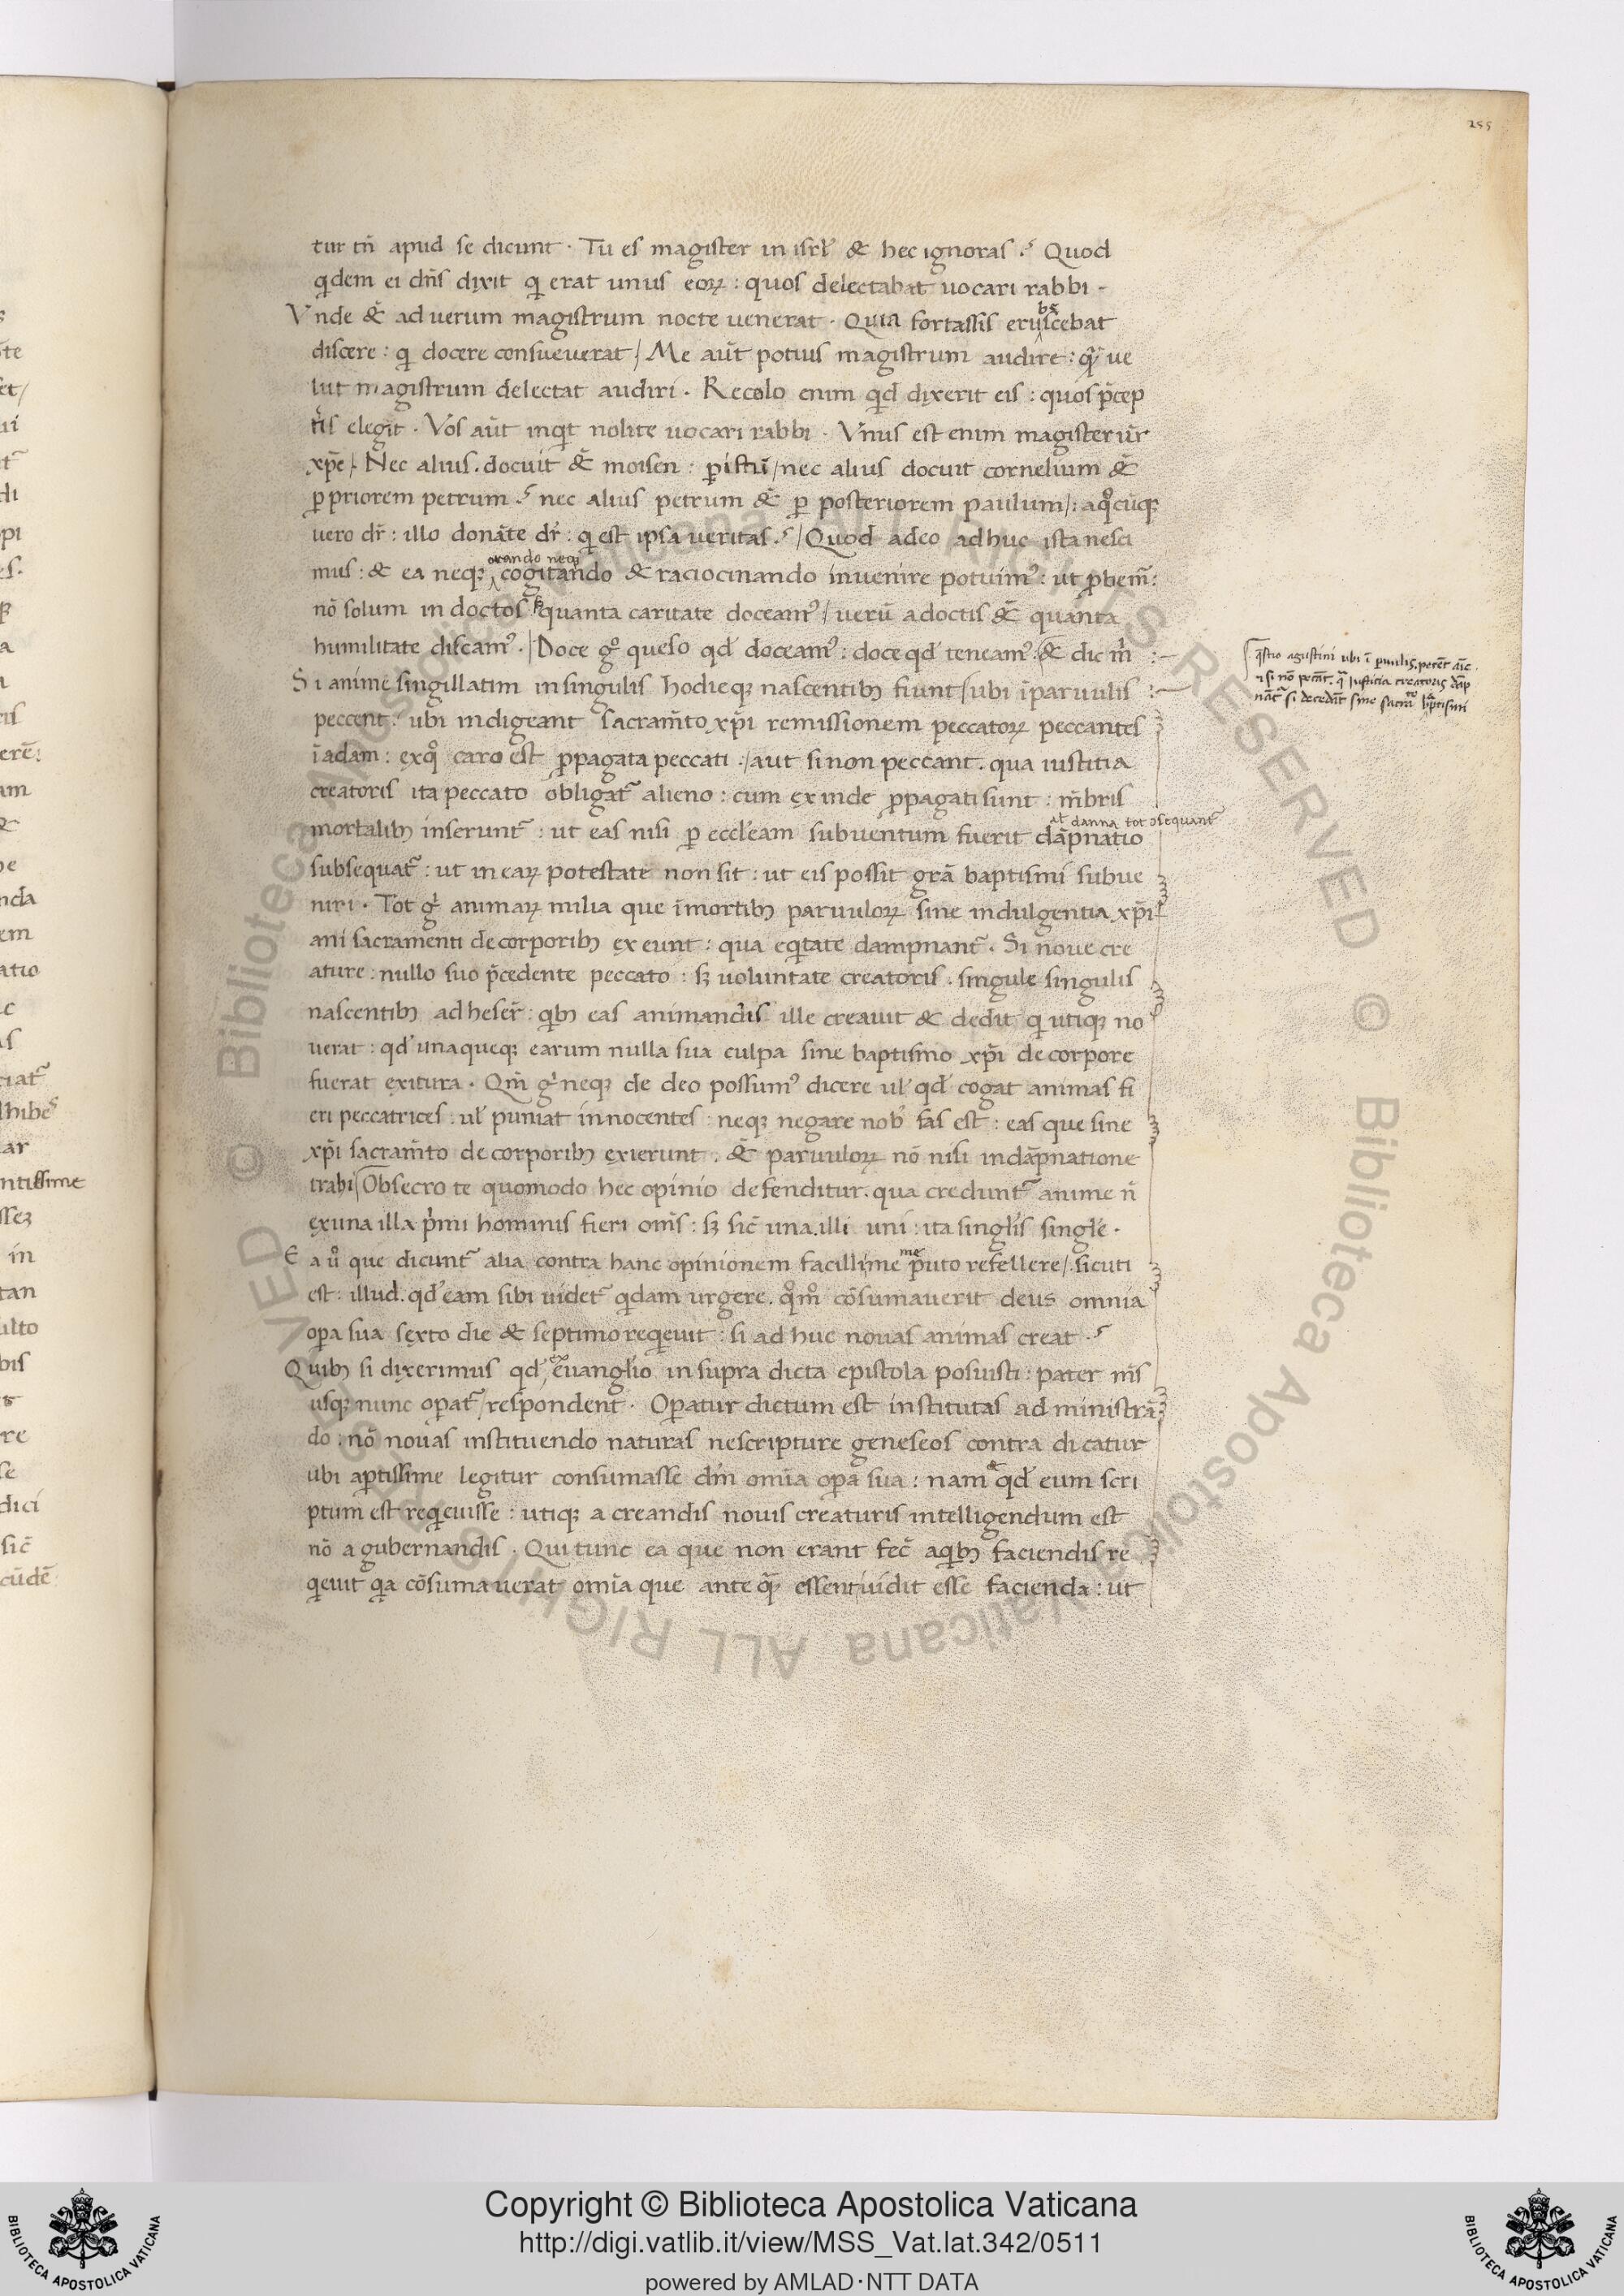 255
tur tñ apud se dicunt · Tu es magister in isrł & hec ignoras ? Quod
qdem ei dñs dixit q erat unus eoꝝ : quos delectabat uocari rabbi -
Vnde & ad uerum magistrum nocte uenerat · Quia fortassis erubescebat
discere : q docere consueuerat / Me aūt potius magistrum audire : q̃ ue
lut magistrum delectat audiri · Recolo enim qd dixerit eis : quos p̄cep
tis elegit · Vos aūt inqt nolite uocari rabbi · Vnus est enim magister ur̃
xp̄e / Nec alius . docuit & moisen : p istū / nec alius docuit cornelium &
ꝑ priorem petrum ? nec alius petrum & ꝑ posteriorem paulum / : aqͦcūqꝫ
uero dr̃ : illo donāte dr̃ : q est ipsa ueritas ? / Quod adeo ad huc ista nesci
orando neqꝫ
mus : & ea neqꝫ cogitando & raciocinando inuenire potuimꝰ : ut ꝓbem̃ :
nō solum in doctos quanta caritate doceamꝰ / uerū a doctis & quanta
humilitate discamꝰ · / Doce gͦ queso qd doceamꝰ : doce qd teneamꝰ : & dic m̃ :
Si anime singillatim in singulis hodieqꝫ nascentibꝫ fiunt / ubi ī paruulis :
peccent : ubi indigeant sacram̃to xp̄i remissionem peccatoꝝ peccantes
ī adam : ex qͦ caro est ꝓpagata peccati · / aut si non peccant . qua iustitia
creatoris ita peccato obligat᷑ alieno : cum ex inde ꝓpagati sunt : m̃bris
at danna tot oſequant᷑
mortalibꝫ inserunt᷑ : ut eas nisi ꝑ eccl̃eam subuentum fuerit dāpnatio
subsequat᷑ : ut in eaꝝ potestate non sit : ut eis possit grā baptismi subue
niri · Tot gͥ animaꝝ milia que ī mortibꝫ paruuloꝝ sine indulgentia xp̄i
ani sacramenti de corporibꝫ exeunt : qua eqtate dampnant᷑ · Si noue cre
ature : nullo suo p̄cedente peccato : sꝫ uoluntate creatoris . singule singulis
nascentibꝫ ad heser̃ : qbꝫ eas animandis ille creauit & dedit q utiqꝫ no
uerat : qd unaqueqꝫ earum nulla sua culpa sine baptismo xp̄i de corpore
fuerat exitura · Qm̃ gͥ neqꝫ de deo possumꝰ dicere ul̃ qd cogat animas fi
eri peccatrices : ul̃ puniat innocentes : neqꝫ negare nob̃ fas est : eas que sine
xp̄i sacram̃to de corporibꝫ exierunt . & paruuloꝝ nō nisi in dāpnatione
trahi / Obsecro te quomodo hec opinio defenditur . qua credunt᷑ anime ñ
ex una illa p̃mi hominis fieri om̃s : sꝫ sic̃ una illi uni : ita singl̃is singl̃e ·
Ea uͦ que dicunt᷑ alia contra hanc opinionem facillime me puto refellere / sicuti
est : illud . qd eam sibi uidet᷑ qdam urgere . qͦmͦ cōsumauerit deus omnia
opa sua sexto die & septimo reqeuit : si ad huc nouas animas creat · ?
Quibꝫ si dixerimus qd ex euangl̃io in supra dicta epistola posuisti : pater m̃s
usqꝫ nunc opat᷑ / respondent᷑ · Operatur dictum est institutas ad ministrā
do : nō nouas instituendo naturas ne scripture geneseos contra dicatur
ubi aptissime legitur consumasse dm̃ om̃ia opa sua : nam & qd eum scri
ptum est reqeuisse : utiqꝫ a creandis nouis creaturis intelligendum est
nō a gubernandis · Qui tunc ea que non erant fec̃ a qbꝫ faciendis re
qeuit qa cōsumauerat om̃ia que ante q̃ essent uidit esse facienda : ut
q̃stio agustini ubi ī paruulis . peccēt aīe .
⁊ si nō peccāt . q̃ Iusticia creatoris dāp
nāt᷑ si decedāt sine sacram̃to baptismi
Copyright © Biblioteca Apostolica Vaticana
http://digi.vatlib.it/view/MSS_Vat.lat.342/0511
powered by AMLAD·NTT DATA
BIBLIOTECA APOSTOLICA VATICANA
BIBLIOTECA APOSTOLICA VATICANA